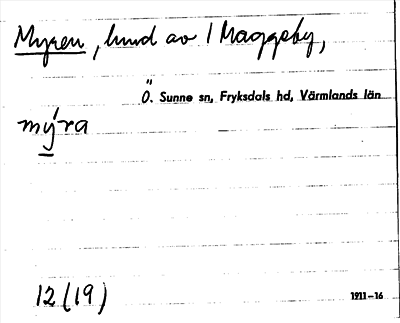 Myren, hmd av 1 Maggeby,
Ö. Sunne sn, Fryksdals hd, Värmlands län
mý̱ra
12 (19)
1911–16